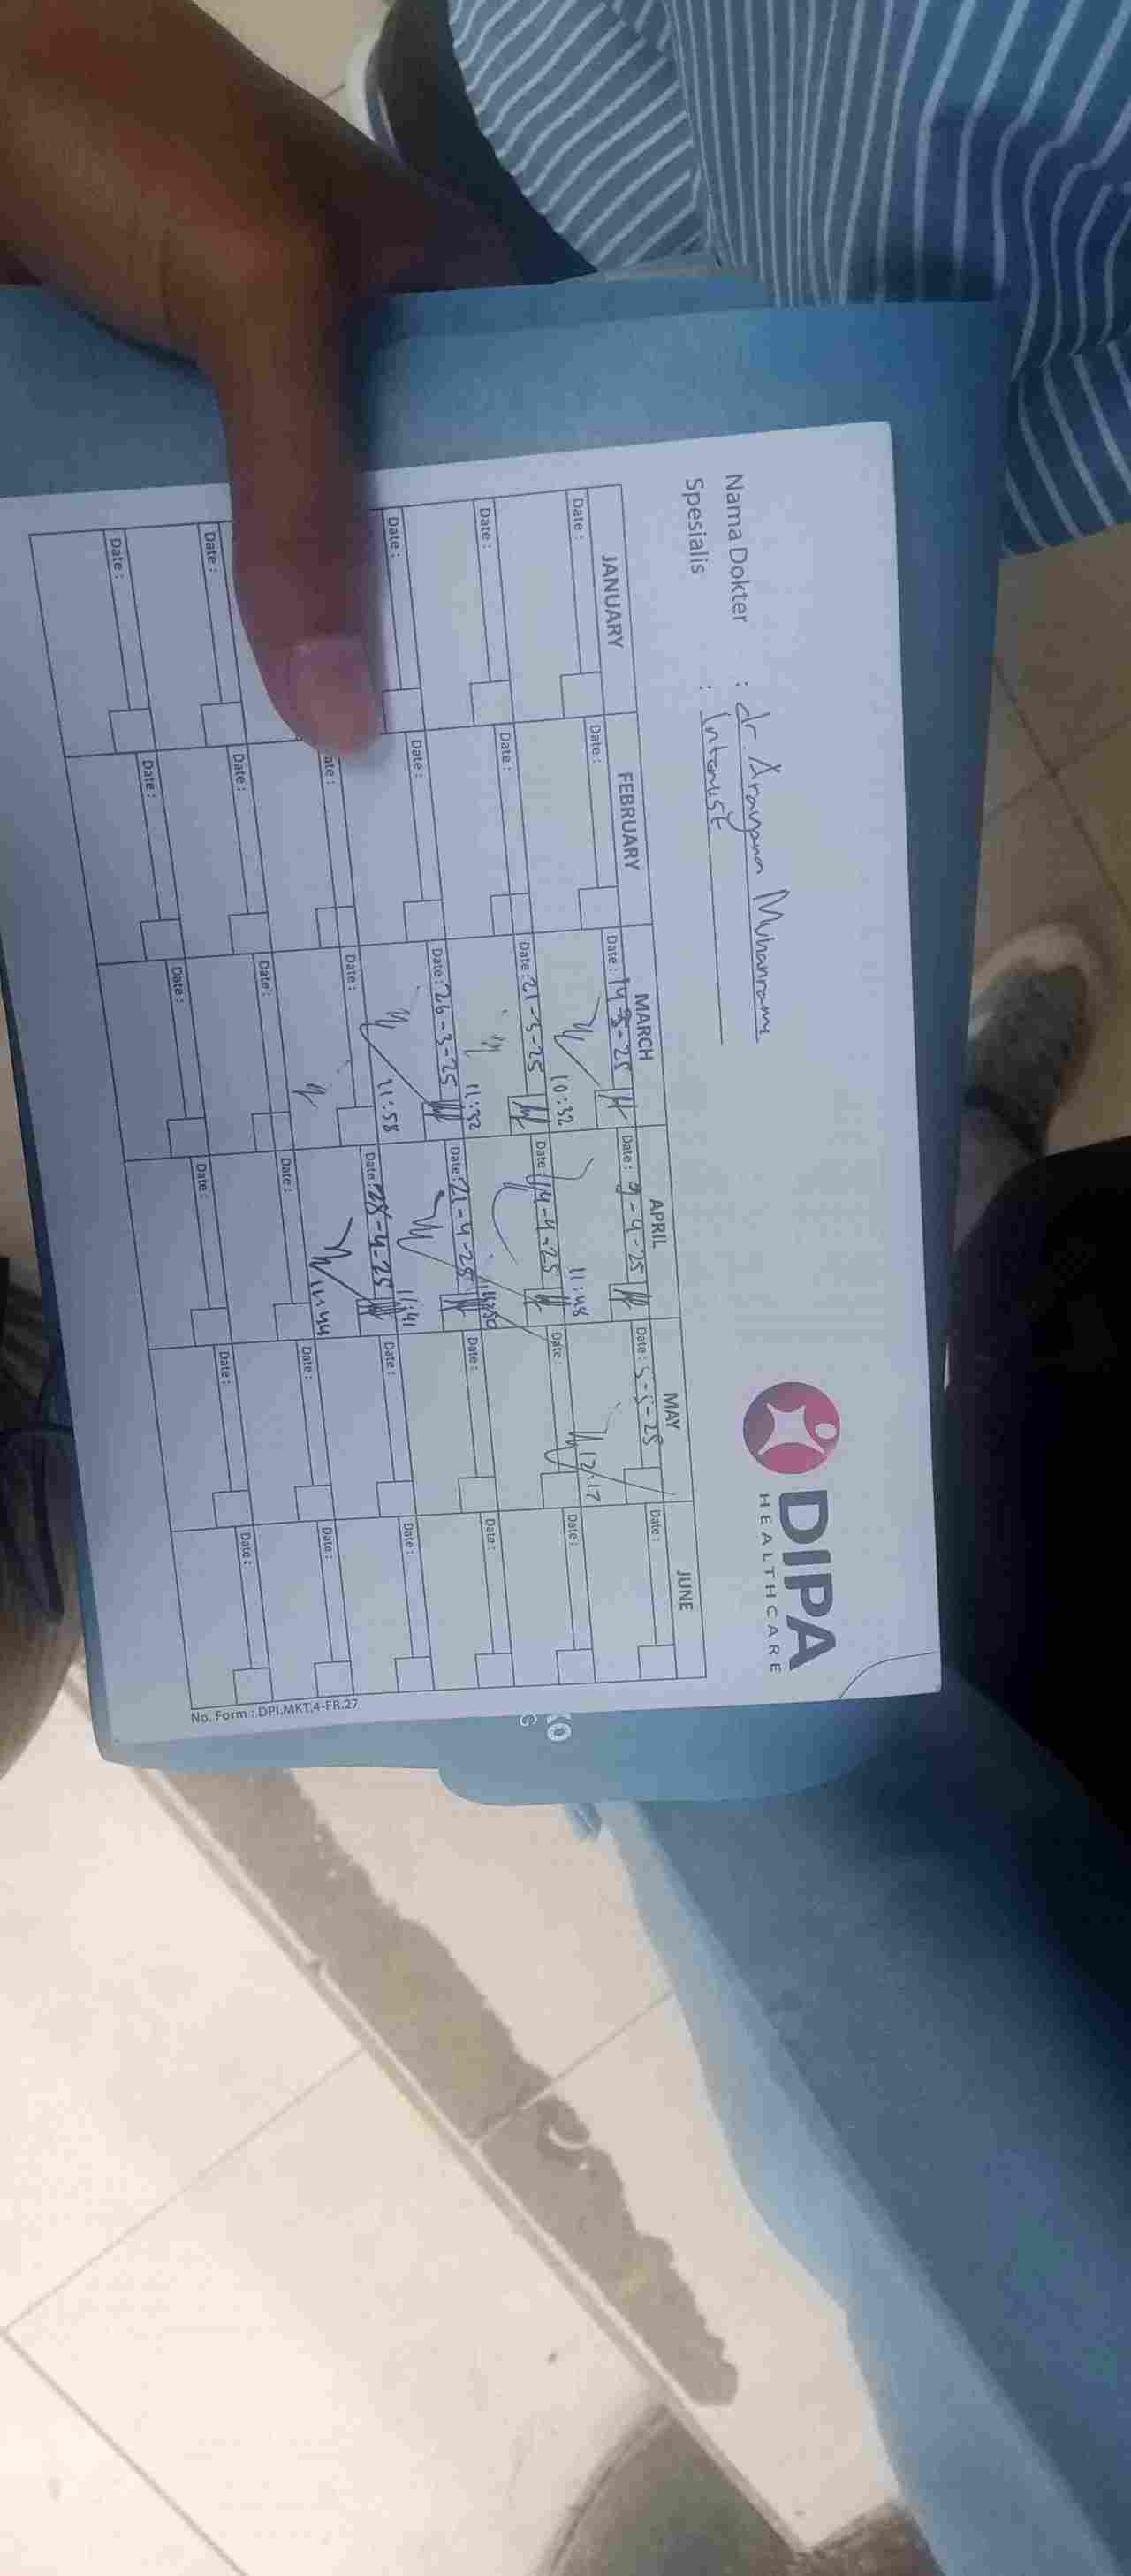 DIPA
HEALTHCARE
Nama Dokter : dr. Arayana Muharramy
Spesialis : Internist
JANUARY FEBRUARY MARCH APRIL MAY JUNE
Date : Date : Date : 14-3-25 Date : 7-4-25 Date : 5-5-25 Date :
10:32 11:48 12:17
Date : Date : Date : 21-3-25 Date : 14-4-25 Date : Date :
11:32
Date : Date : Date : 26-3-25 Date : 21-4-25 Date : Date :
11:58 11:41
ate : Date : Date : 28-4-25 Date : Date :
11:44
Date : Date : Date : Date : Date : Date :
Date : Date : Date : Date : Date : Date :
No. Form : DPI.MKT.4-FR.27